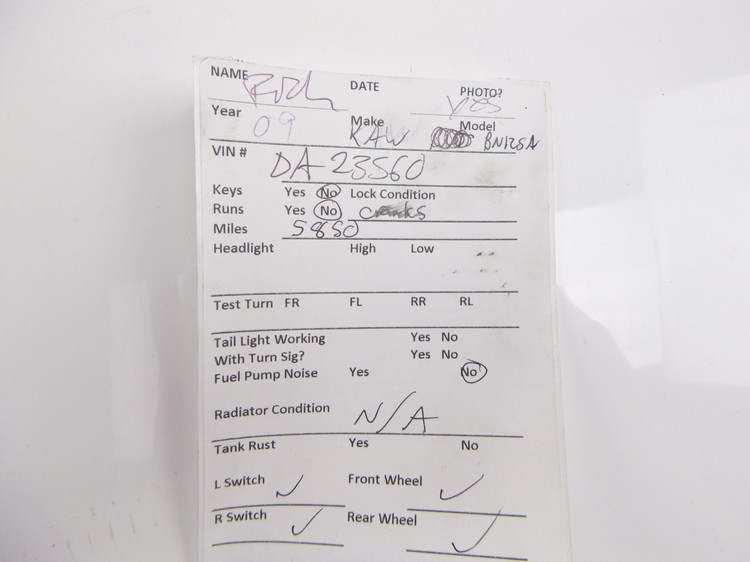 NAME Rich DATE PHOTO? yes
Year 09 Make KAW Model BN125A
VIN # DA-23560
Keys Yes No Lock Condition
Runs Yes No
Miles 5850
Headlight High Low
Test Turn FR FL RR RL
Tail Light Working Yes No
With Turn Sig? Yes No
Fuel Pump Noise Yes No
Radiator Condition N/A
Tank Rust Yes No
L Switch ✓ Front Wheel ✓
R Switch ✓ Rear Wheel ✓